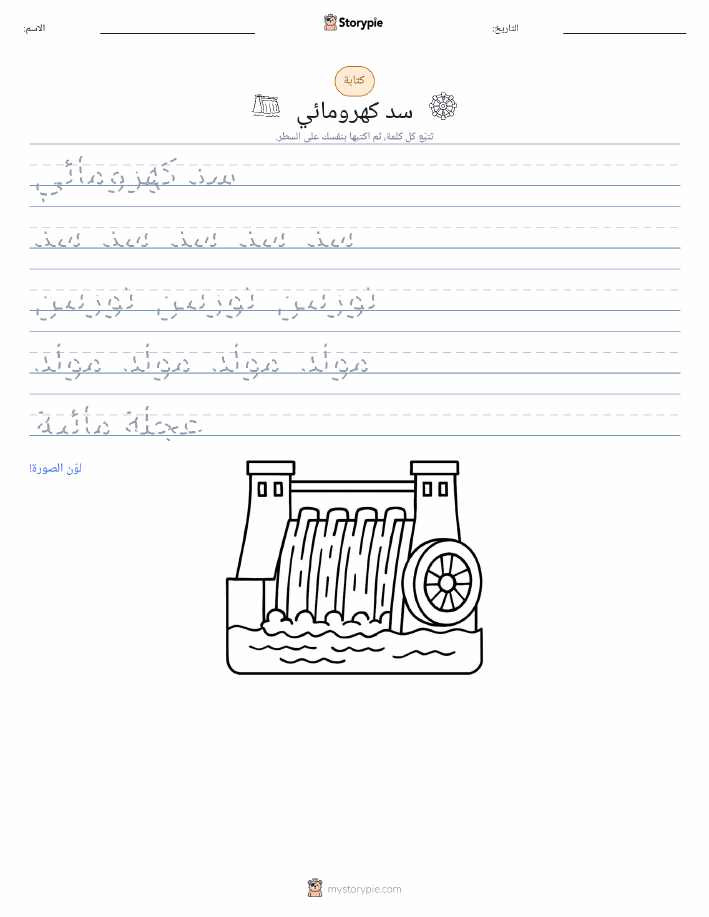 الاسم:
Storypie
التاريخ:
كتابة
سد كهرومائي
تتبّع كل كلمة، ثم اكتبها بنفسك على السطر.
سد كهرومائي
سد سد سد سد سد
توربين توربين توربين
مولد مولد مولد مولد
عجلة مائية
لوّن الصورة!
mystorypie.com